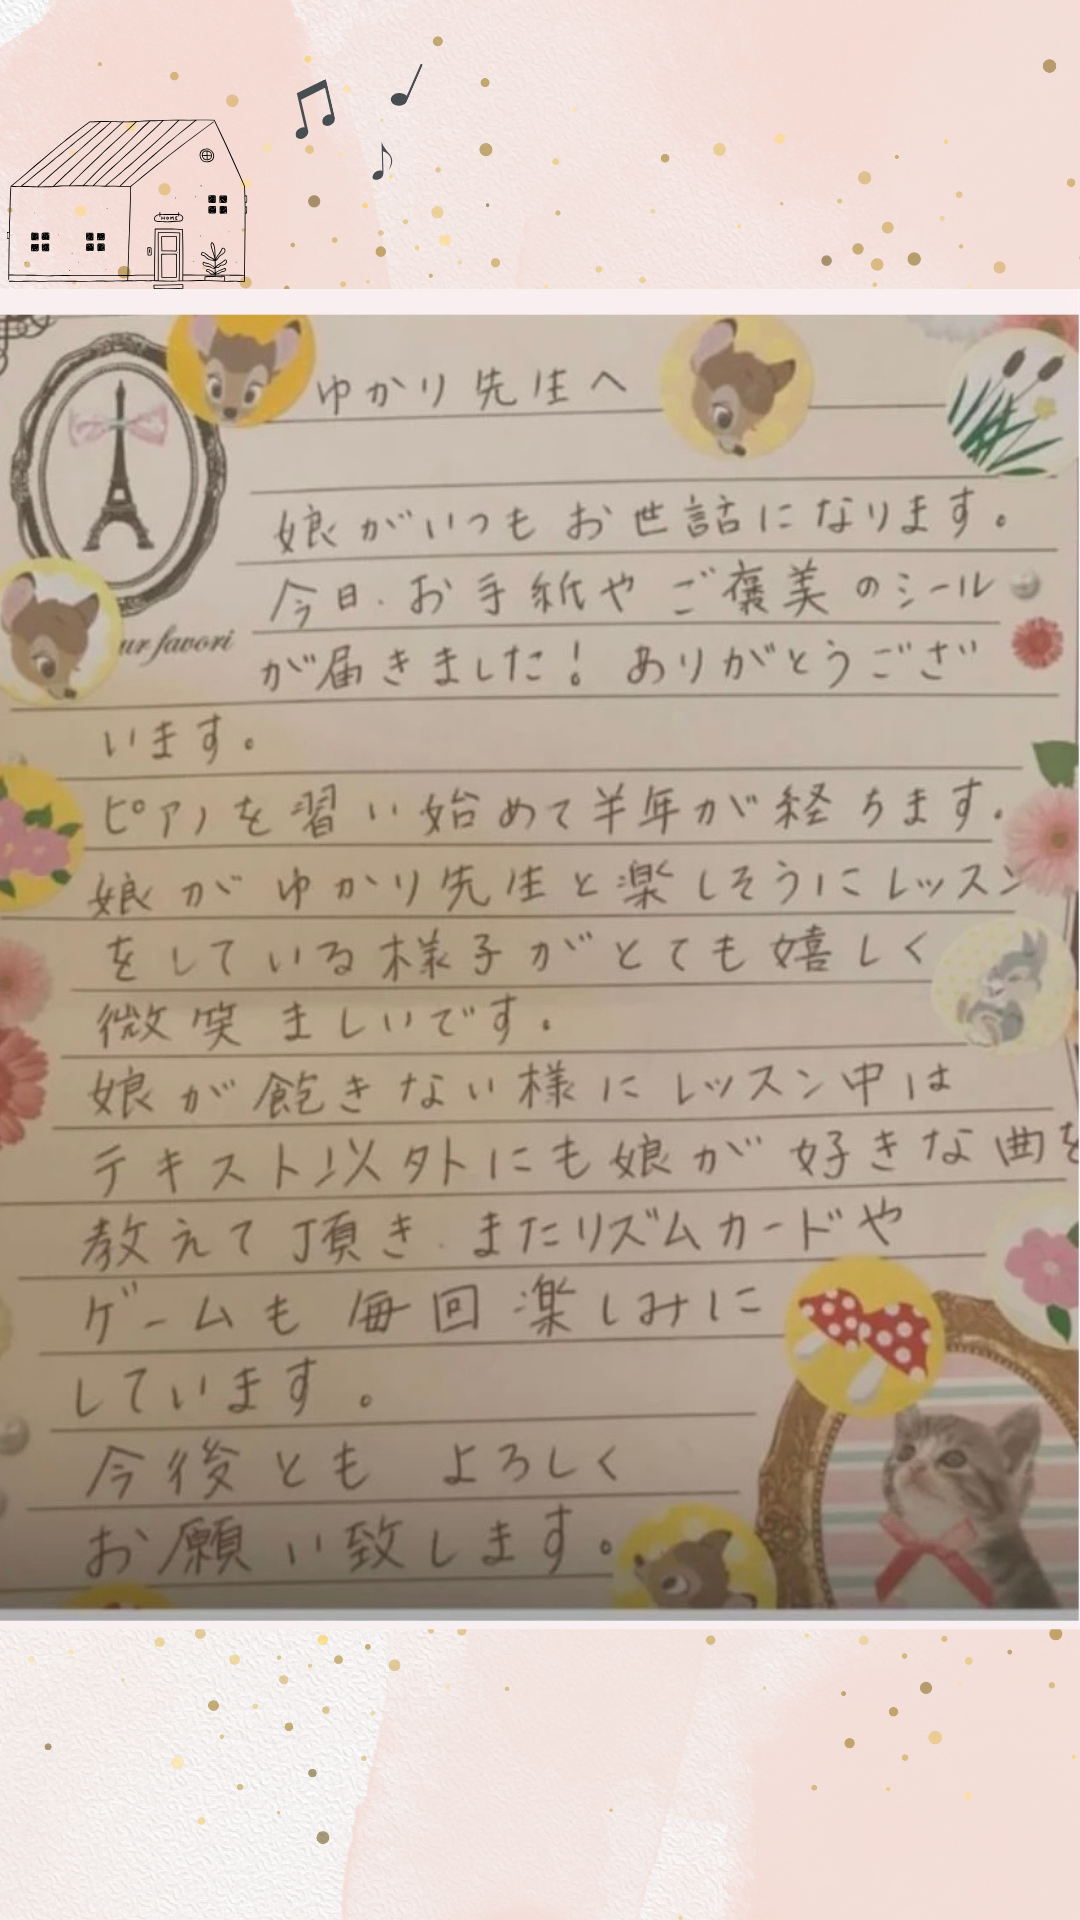 HOME
ゆかり先生へ
娘がいつもお世話になります。
今日、お手紙やご褒美のシール
ur favori
が届きました！ ありがとうござ
います。
ピアノを習い始めて半年が経ちます。
娘がゆかり先生と楽しそうにレッスン
をしている様子がとても嬉しく
微笑ましいです。
娘が飽きない様にレッスン中は
テキスト以外にも娘が好きな曲を
教えて頂き、またリズムカードや
ゲームも毎回楽しみに
しています。
今後とも よろしく
お願い致します。